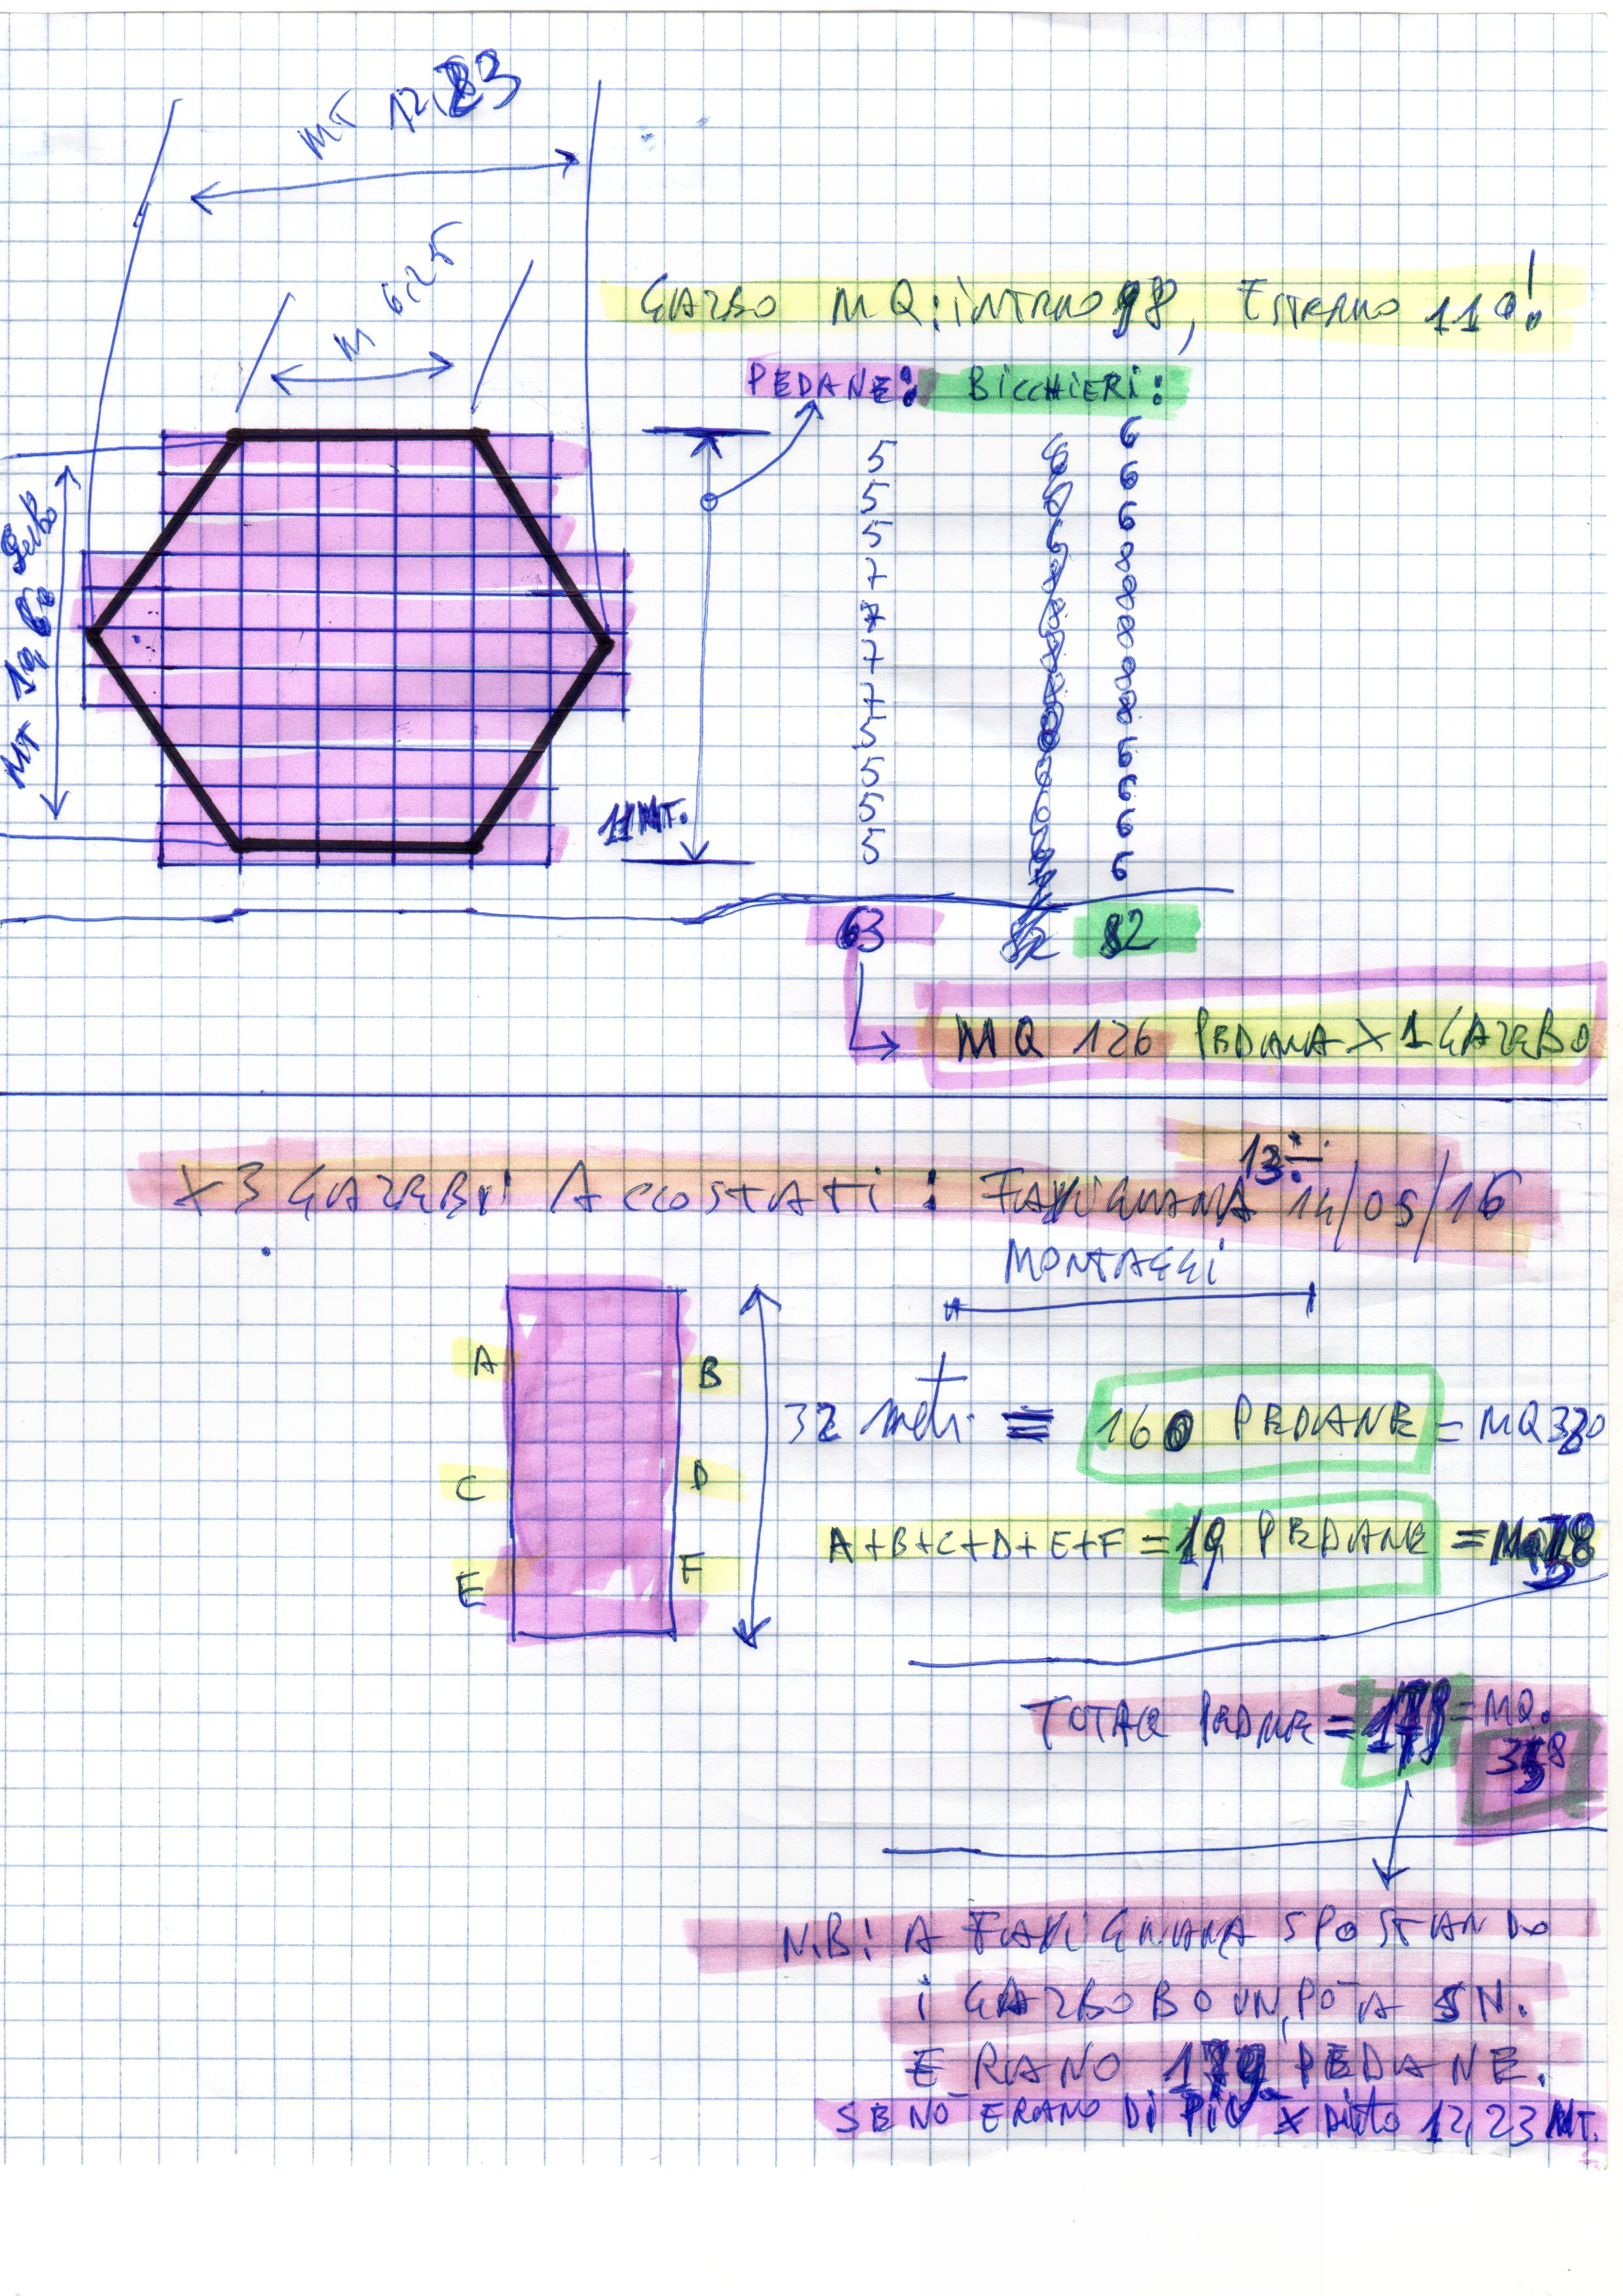 MT 12,23
M 6,25
GAZBO MQ: INTRNO 98, ESTRNO 110!
PEDANE: BICCHIERI:
6
5 6 6
5 6 6
5 6 6
7 8 8
7 8 8
7 8 8
7 8 8
5 8
5 6
5 6
5 6
6
11 MT.
63 82 82
MQ 126 PEDANA X 1 GAZEBO
X 3 GAZEBI ACCOSTATI: FAVIGNANA 13÷14/05/16
MONTAGGI
A B
32 metri = 160 PEDANE = MQ 320
C D
A+B+C+D+E+F = 19 PEDANE = MQ 38
E F
TOTALE PEDANE = 179 = MQ.
358
N.B: A FAVIGNANA SPOSTANDO
I GAZBOBO UN PO' A SN.
ERANO 179 PEDANE.
SENO ERANO DI PIÙ X Ditto 12,23 MT.